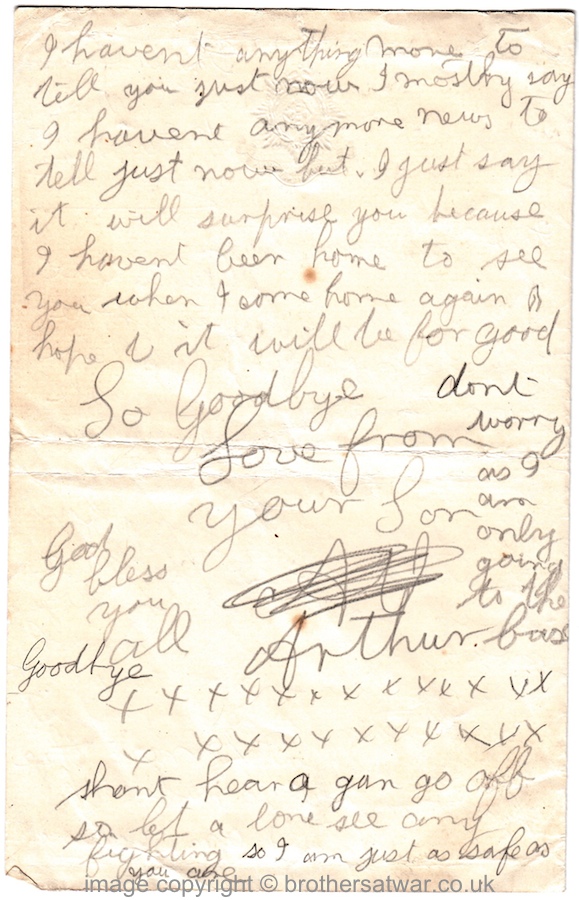 I havent anything more to
tell you just now I mostly say
I havent anymore news to
tell just now but. I just say
it will surprise you because
I havent been home to see
you when I come home again
hope it will be for good
So Goodbye
Love from
your Son
Arthur.
dont
worry
as I
am
only
going
to the
base
God
bless
you
all
Goodbye
x x x x x x x x x x x x x
x x x x x x x x x x x x
shant hear a gun go off
so let a lone see any
fighting so I am just as safe as
you are
image copyright © brothersatwar.co.uk